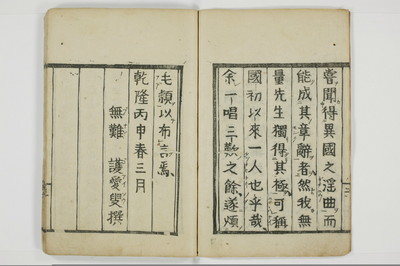 嘗聞得異國之曲而
能成其章辭者然我無
量先生獨得其極可稱
國初以來一人也乎哉
余一唱三歎之餘遂煩
毛穎以布言焉
乾隆丙申春三月
無難 護愛叟撰